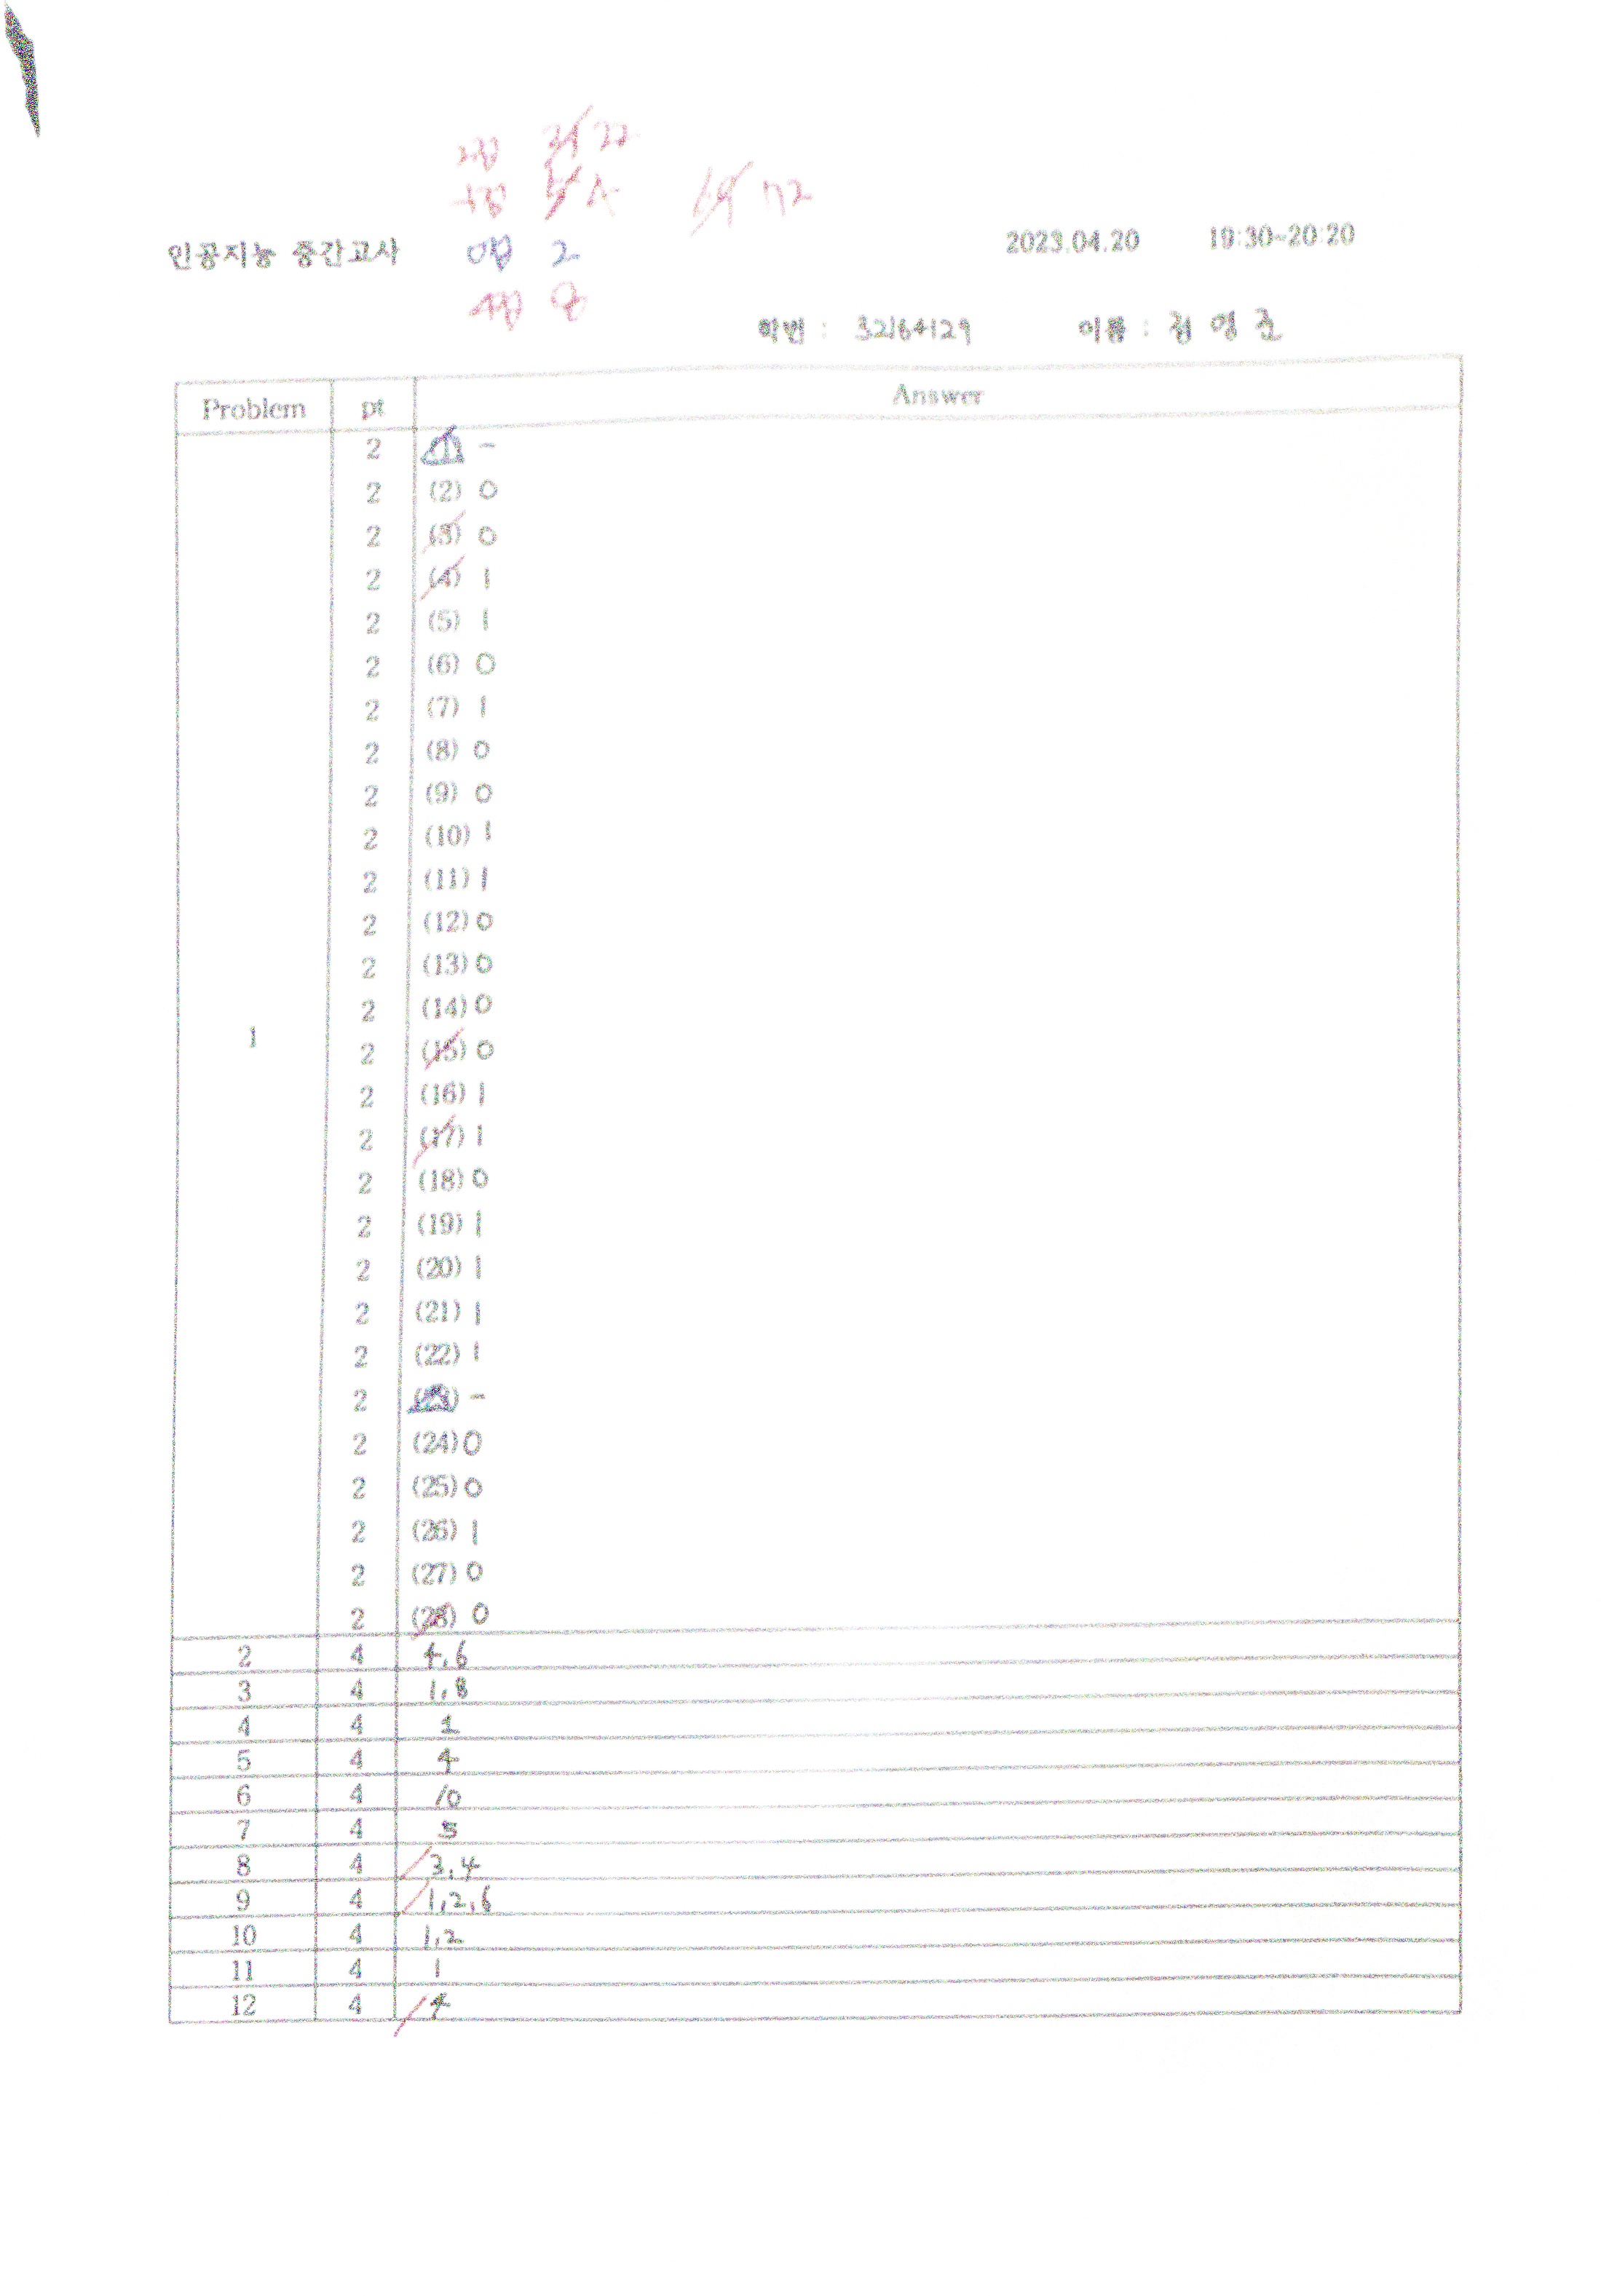 2점 21 22
5
64 72
인공지능 중간고사
2
2023.04.20 19:30~20:20
4점 8
학번 : 32164129 이름 : 정영준
Problem pt Answer
2 (1) -
2 (2) 0
2 (3) 0
2 (4) 1
2 (5) 1
2 (6) 0
2 (7) 1
2 (8) 0
2 (9) 0
2 (10) 1
2 (11) 1
2 (12) 0
2 (13) 0
2 (14) 0
1
2 (15) 0
2 (16) 1
2 (17) 1
2 (18) 0
2 (19) 1
2 (20) 1
2 (21) 1
2 (22) 1
2 (23) -
2 (24) 0
2 (25) 0
2 (26) 1
2 (27) 0
2 (28) 0
2 4 4,6
3 4 1,8
4 4 1
5 4 4
6 4 10
7 4 5
8 4 3,4
9 4 1,2,6
10 4 1,2
11 4 1
12 4 4